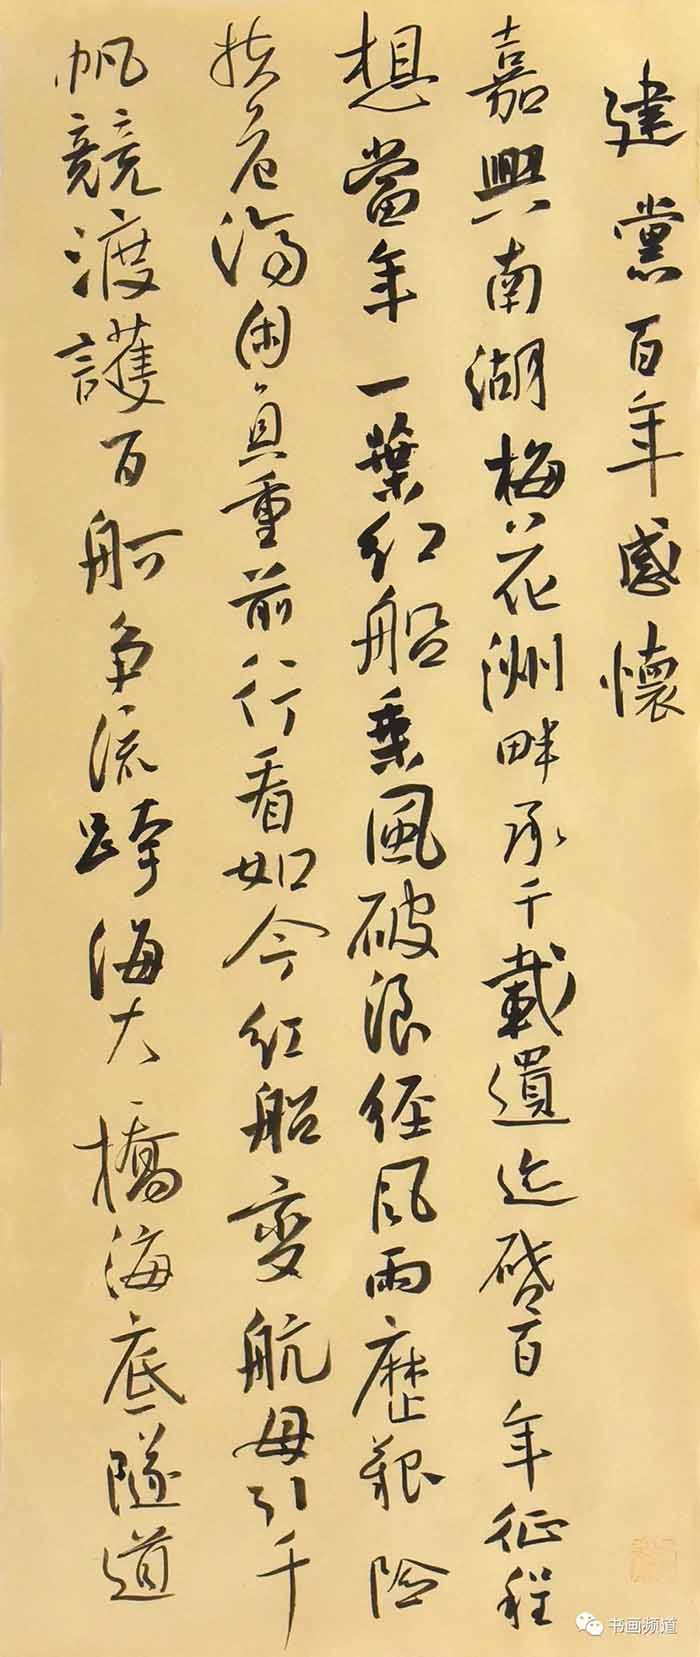 建黨百年感懷
嘉興南湖梅花洲畔承千載遺迹啓百年征程
想當年一葉紅船乘風破浪經風雨歷艱險
扶危濟困負重前行看如今紅船變航母引千
帆競渡護百舸争流跨海大橋海底隧道
书画频道